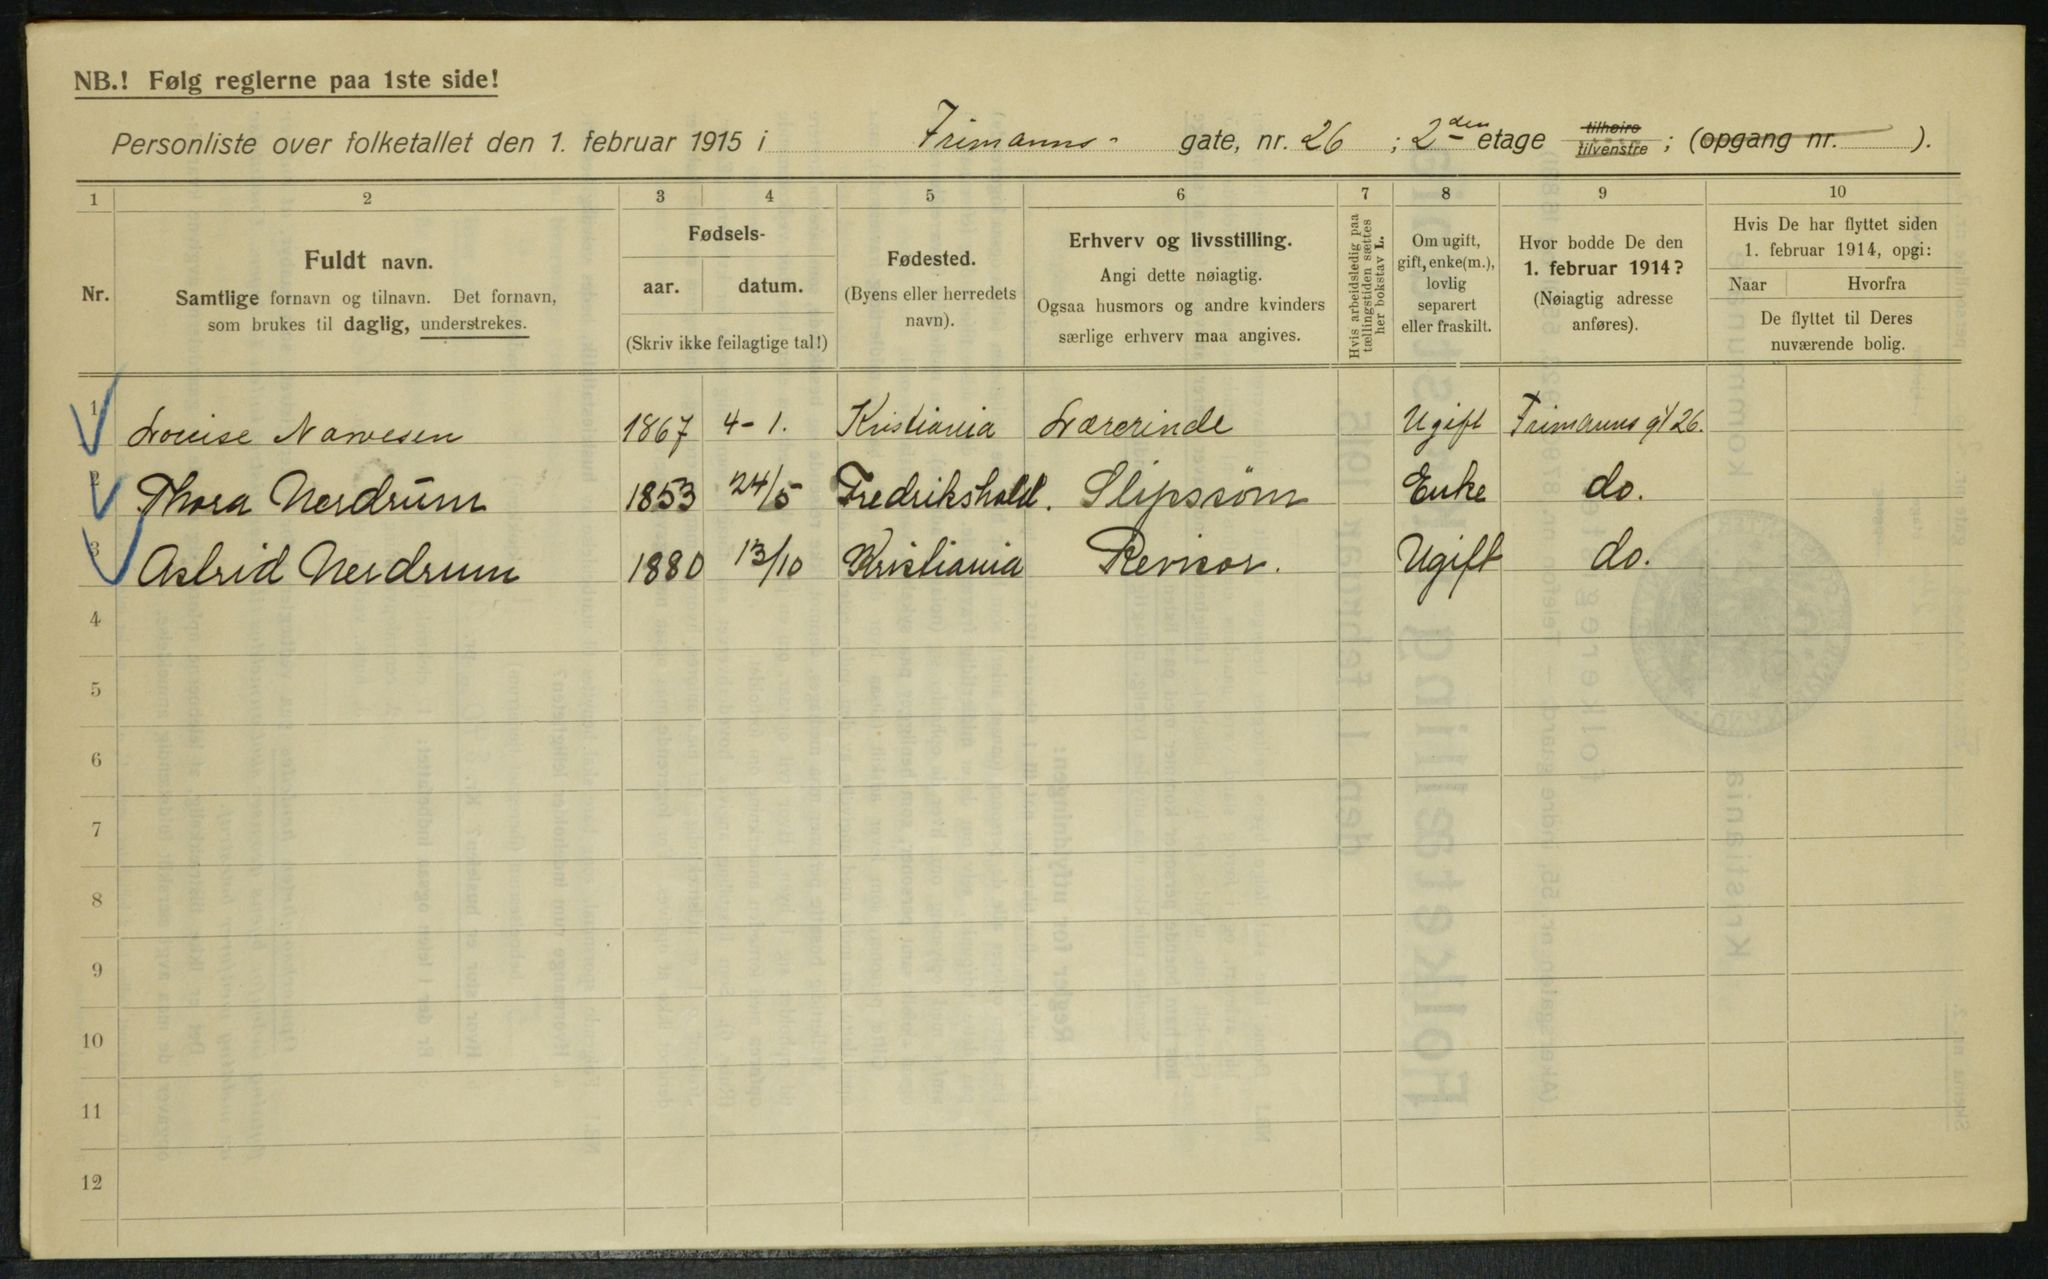 NB.! Følg reglerne paa 1ste side!
Personliste over folketallet den 1. februar 1915 i Frimanns- gate, nr. 26 ; 2den etage tilhøire tilvenstre ; (opgang nr. ).
1 2 3 4 5 6 7 8 9 10
Nr.
Fuldt navn.
Samtlige fornavn og tilnavn. Det fornavn,
som brukes til daglig, understrekes.
Fødsels-
aar. datum.
(Skriv ikke feilagtige tal!)
Fødested.
(Byens eller herredets
navn).
Erhverv og livsstilling.
Angi dette nøiagtig.
Ogsaa husmors og andre kvinders
særlige erhverv maa angives.
Hvis arbeidsledig paa
tællingstiden sættes
her bokstav L.
Om ugift,
gift, enke(m.),
lovlig
separert
eller fraskilt.
Hvor bodde De den
1. februar 1914?
(Nøiagtig adresse
anføres).
Hvis De har flyttet siden
1. februar 1914, opgi:
Naar Hvorfra
De flyttet til Deres
nuværende bolig.
1 Louise Narvesen 1867 4-1. Kristiania Lærerinde Ugift Frimanns gt 26.
2 Thora Nerdrum 1853 24/5 Fredrikshald. Slipssöm Enke do.
3 Astrid Nerdrum 1880 13/10 Kristiania Revisor. Ugift do.
4
5
6
7
8
9
10
11
12